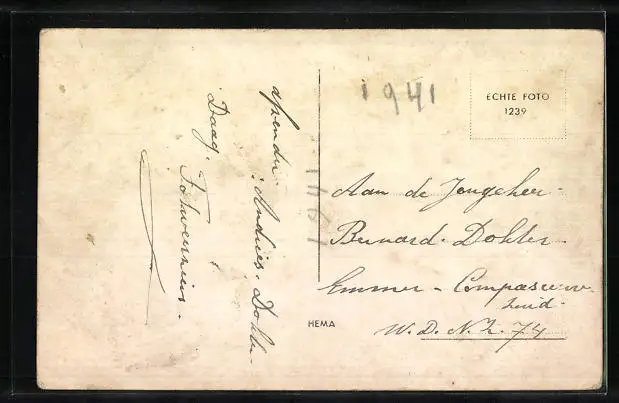 afzender
Andries. Dokter
Daag.
1941
ECHTE FOTO
1239
Aan de Jongeheer
Bernard. Dokter
Emmer - Compascuum
zuid.
W.D. N.Z. 74
HEMA